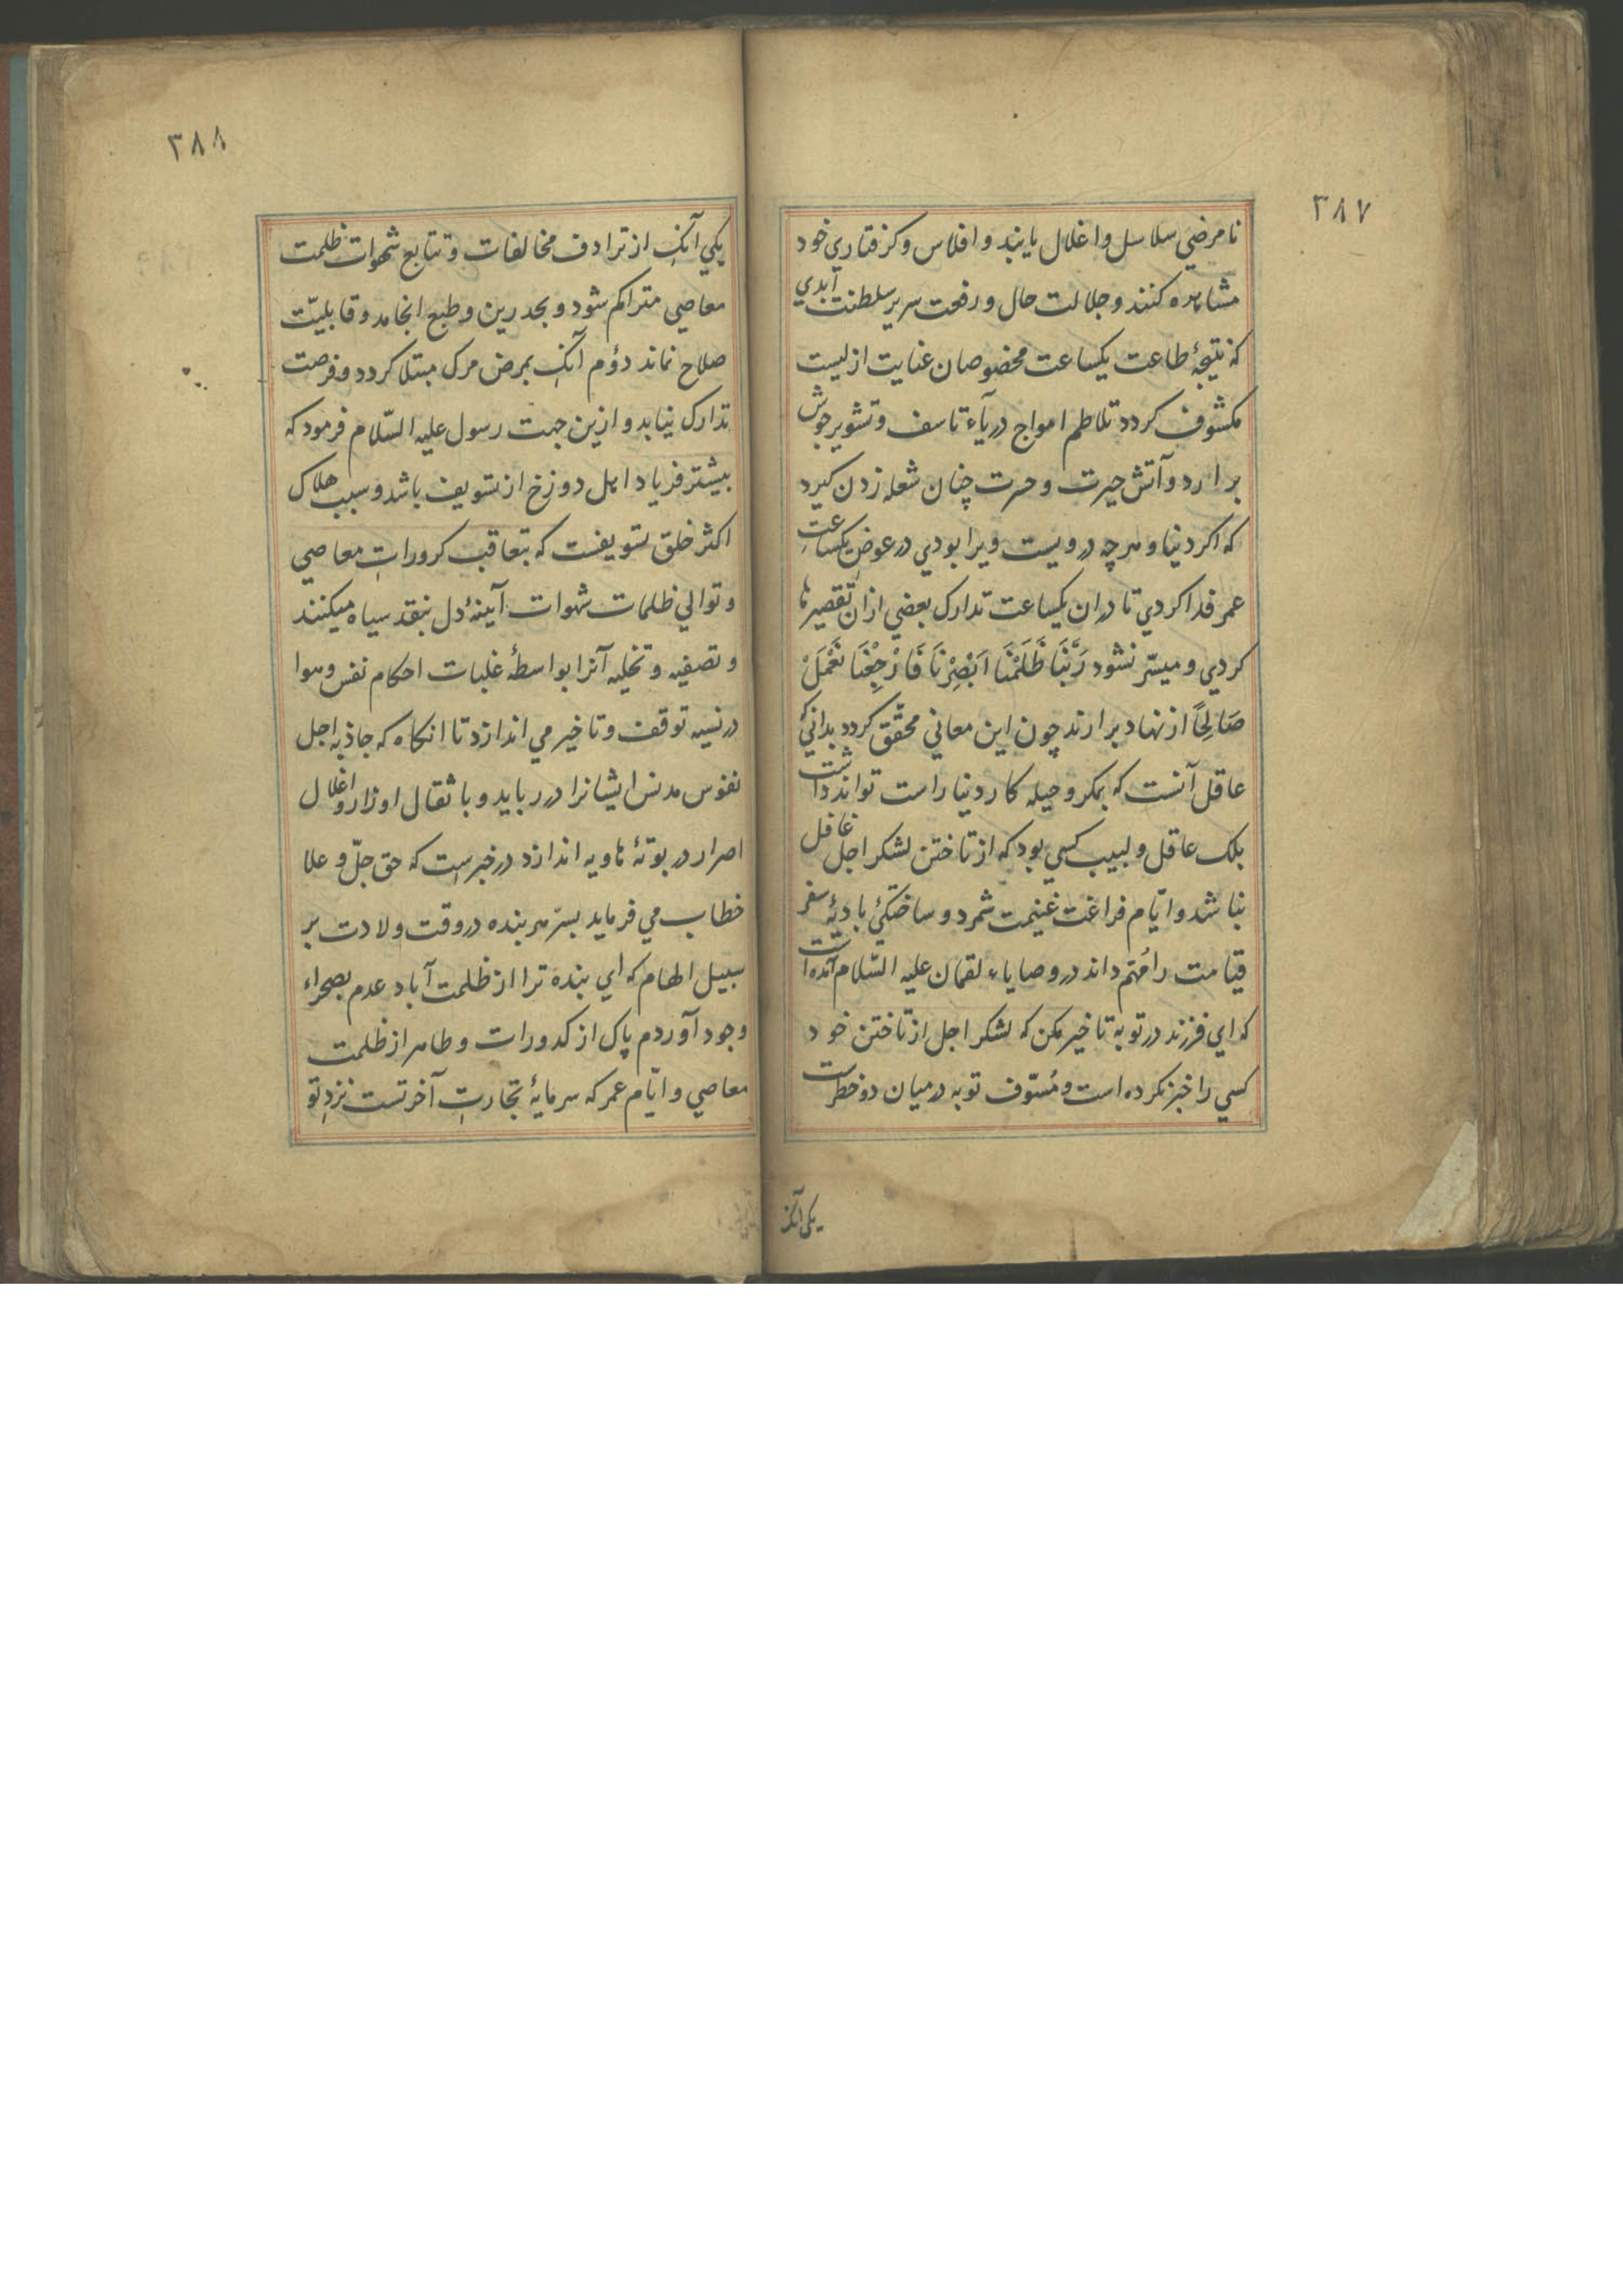 ۳۸۷
نامرضي سلاسل واغلال يابند و افلاس و كرفتاري خود
مشاهده كنند و جلالت حال و رفعت سرير سلطنت ابدي
كه نتيجۀ طاعت يكساعت مخصوصان عنايت ازليست
مكشوف كردد تلاطم امواج درياء تاسف و تشوير جوش
برارد و آتش حيرت و حسرت چنان شعله زدن كيرد
كه اكر دنيا و هرچه درويست ويرا بودي در عوض يكساعت
عمر فدا كردي تا دران يكساعت تدارك بعضي ازان تقصيرها
كردي و ميسّر نشود رَبَّنَا ظَلَمْنَا اَبْصِرْنَا فَارْجِعْنَا نَعْمَلْ
صَالِحًا از نهاد برارند چون اين معاني محقّق كردد بدانيكه
عاقل آنست كه بمكر و حيله كار دنيا راست تواند داشت
بلك عاقل و لبيب كسي بود كه از تاختن لشكر اجل غافل
نباشد و ايّام فراغت غنيمت شمرد و ساختكئ باديۀ سفر
قيامت را مُهتم داند در وصاياء لقمان عليه السّلام آمده است
كه اي فرزند در توبه تاخير مكن كه لشكر اجل از تاختن خود
كسي را خبر نكرده است و مُسَوّف توبه در ميان دو خطرست
يكي آنكه
۳۸۸
يكي آنك از ترادف مخالفات و تتابع شهوات ظلمت
معاصي متراكم شود و بحد رين و طبع انجامد و قابليّت
صلاح نماند دوُم آنك بمرض مرك مبتلا كردد و فرصت
تدارك نيابد و ازين جهت رسول عليه السّلام فرمود كه
بيشتر فرياد اهل دوزخ از تسويف باشد و سبب هلاك
اكثر خلق تسويفست كه بتعاقب كرورات معاصي
و توالي ظلمات شهوات آيينۀ دل بنقد سياه ميكنند
و تصفيه و تخليه آنرا بواسطۀ غلبات احكام نفس و هوا
در نسيه توقف و تاخير مي اندازد تا انكاه كه جاذبه اجل
نفوس مدنس ايشانرا در ربايد و با ثقال اوزار و اغلال
اصرار در بوتۀ هاويه اندازد در خبرست كه حق جلّ و علا
خطاب مي فرمايد بسرّ هر بنده در وقت ولادت بر
سبيل الهام كه اي بنده ترا از ظلمت آباد عدم بصحراء
وجود آوردم پاك از كدورات و طاهر از ظلمت
معاصي و ايّام عمر كه سرمايۀ تجارت آخرتست نزد تو